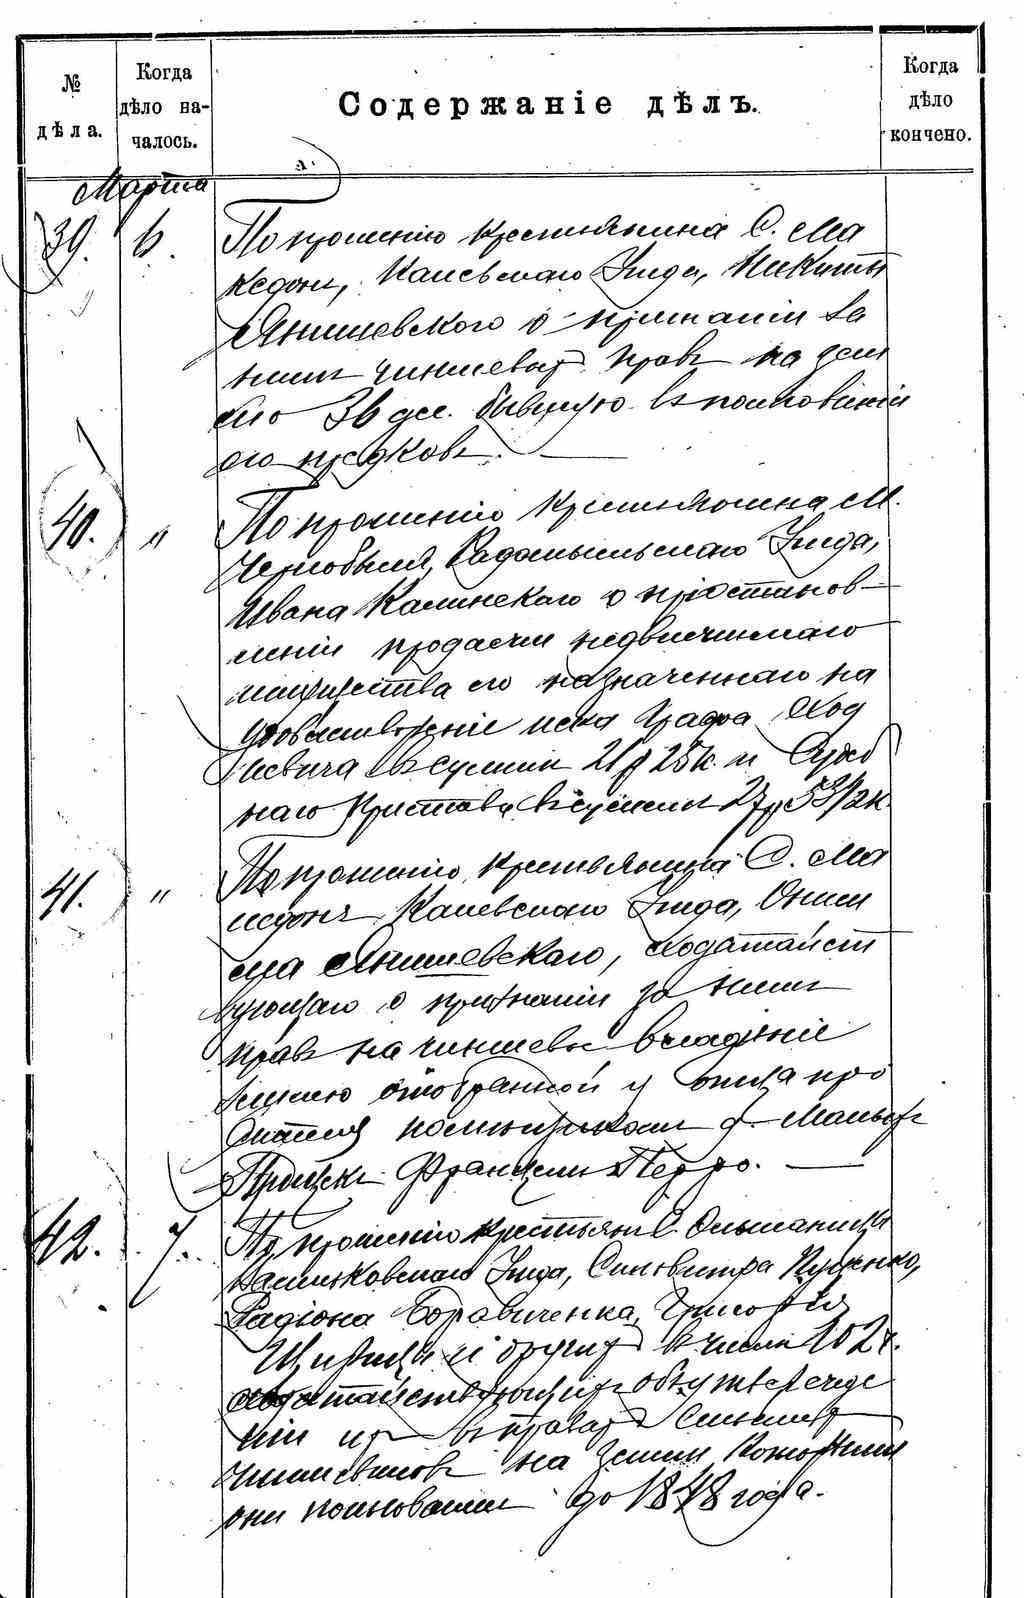 № дѣла.
Когда дѣло на-
чалось.
Содержаніе дѣлъ.
Когда дѣло кончено.
Марта
39. 6. По прошенію крестьянина С. Ма
кедонъ, Каневскаго Уѣзда, Никиты
Янишевского о признаніи за
нимъ чиншевыхъ правъ на зем
лю 36 дес. бывшую въ пользованіи
его предковъ.
40. " По прошенію крестьянина М.
Чернобыля, Радомысльскаго Уѣзда,
Ивана Калинскаго о пріостанов-
леніи продажи недвижимаго
имущества его назначеннаго на
удовлетвореніе иска Графа Ход
кевича въ суммѣ 21 р 25 к. и Судеб
наго Пристава въ суммѣ 27 р 53 1/2 к.
41. " По прошенію крестьянина С. Ма
кедонъ Каневскаго Уѣзда, Ониси
ма Янишевскаго, ходатайст
вующаго о признаніи за нимъ
правъ на чиншевое владѣніе
землею отобранной у отца про
сителя помѣщикомъ д.
Францемъ Перро.
42. 7. По прошенію крестьянъ С. Ольшаницы
Васильковскаго Уѣзда, Сильвестра
Радіона Боравиченка, Григорія
и другихъ въ числѣ 102 ч.
ходатайствующихъ объ утвержде
ніи ихъ въ правахъ сельскихъ
чиншевиковъ на земли которыми
они пользовались до 1848 года.